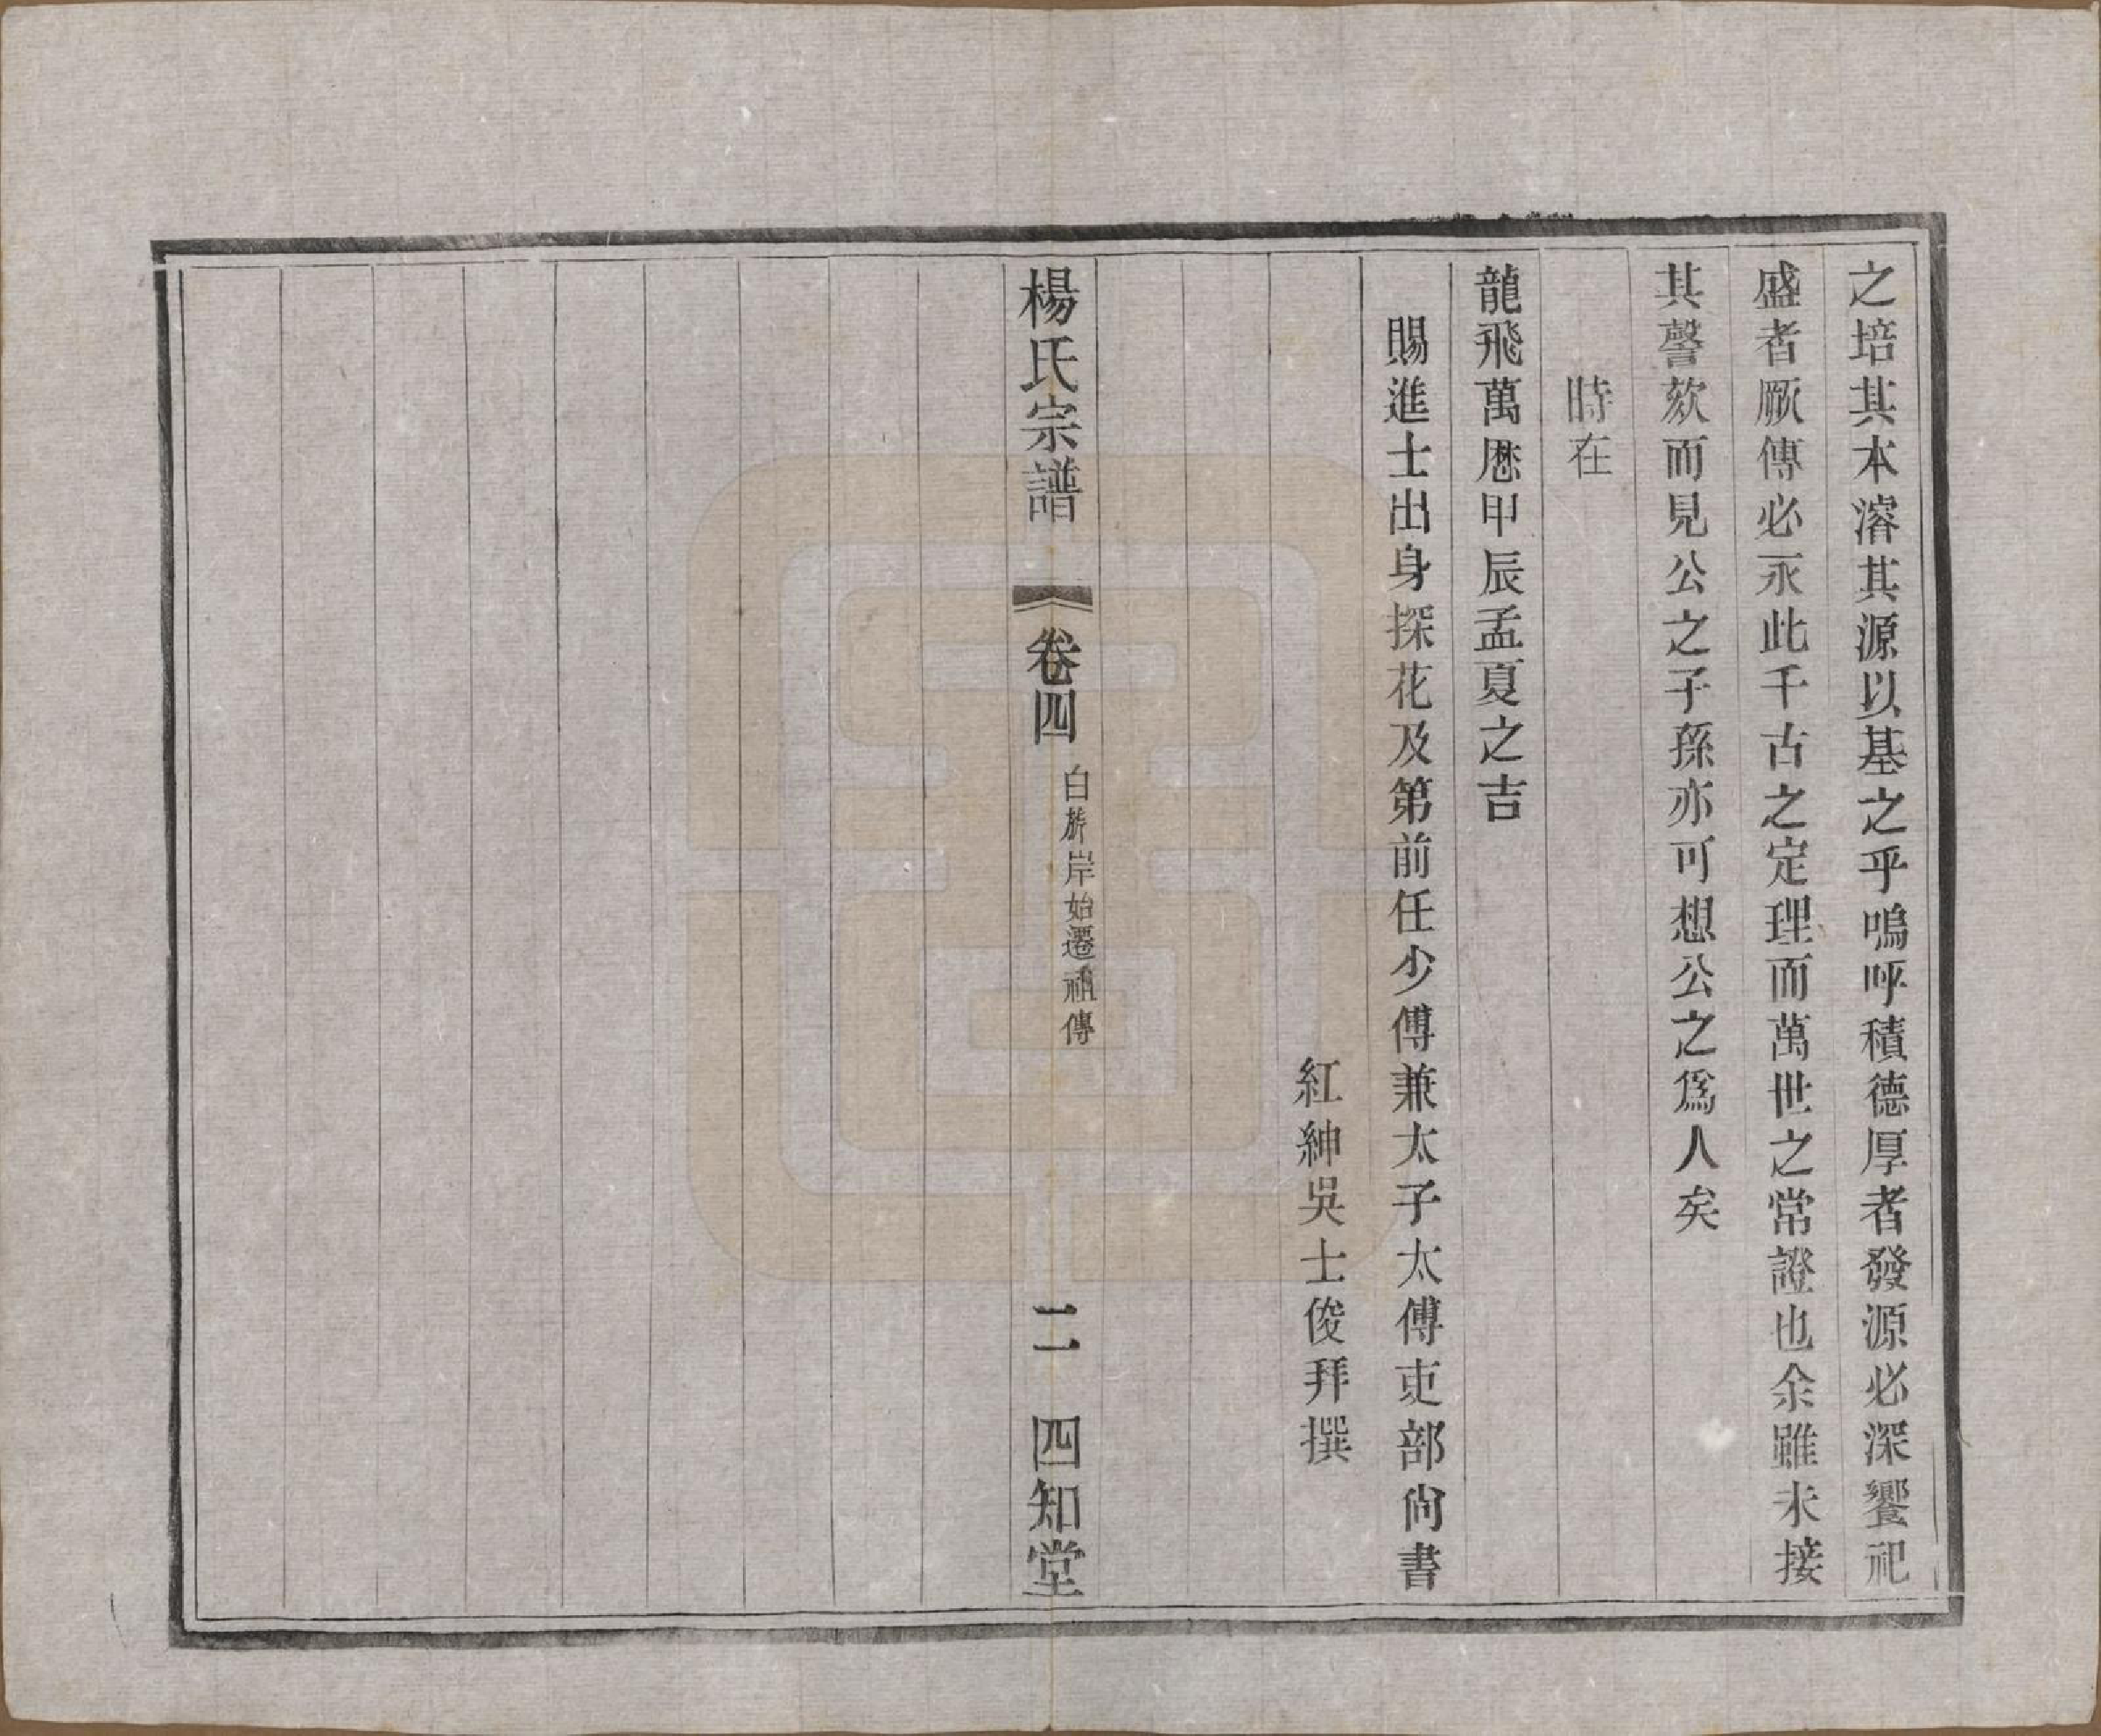 之培其本濬其源以基之乎嗚呼積德厚者發源必深饗祀
盛者厥傳必永此千古之定理而萬世之常證也余雖未接
其謦欬而見公之子孫亦可想公之爲人矣
時在
龍飛萬厯甲辰孟夏之吉
賜進士出身探花及第前任少傅兼太子太傅吏部尙書
紅紳吳士俊拜撰
楊氏宗譜 卷四 白岸始遷祖傳 二 四知堂